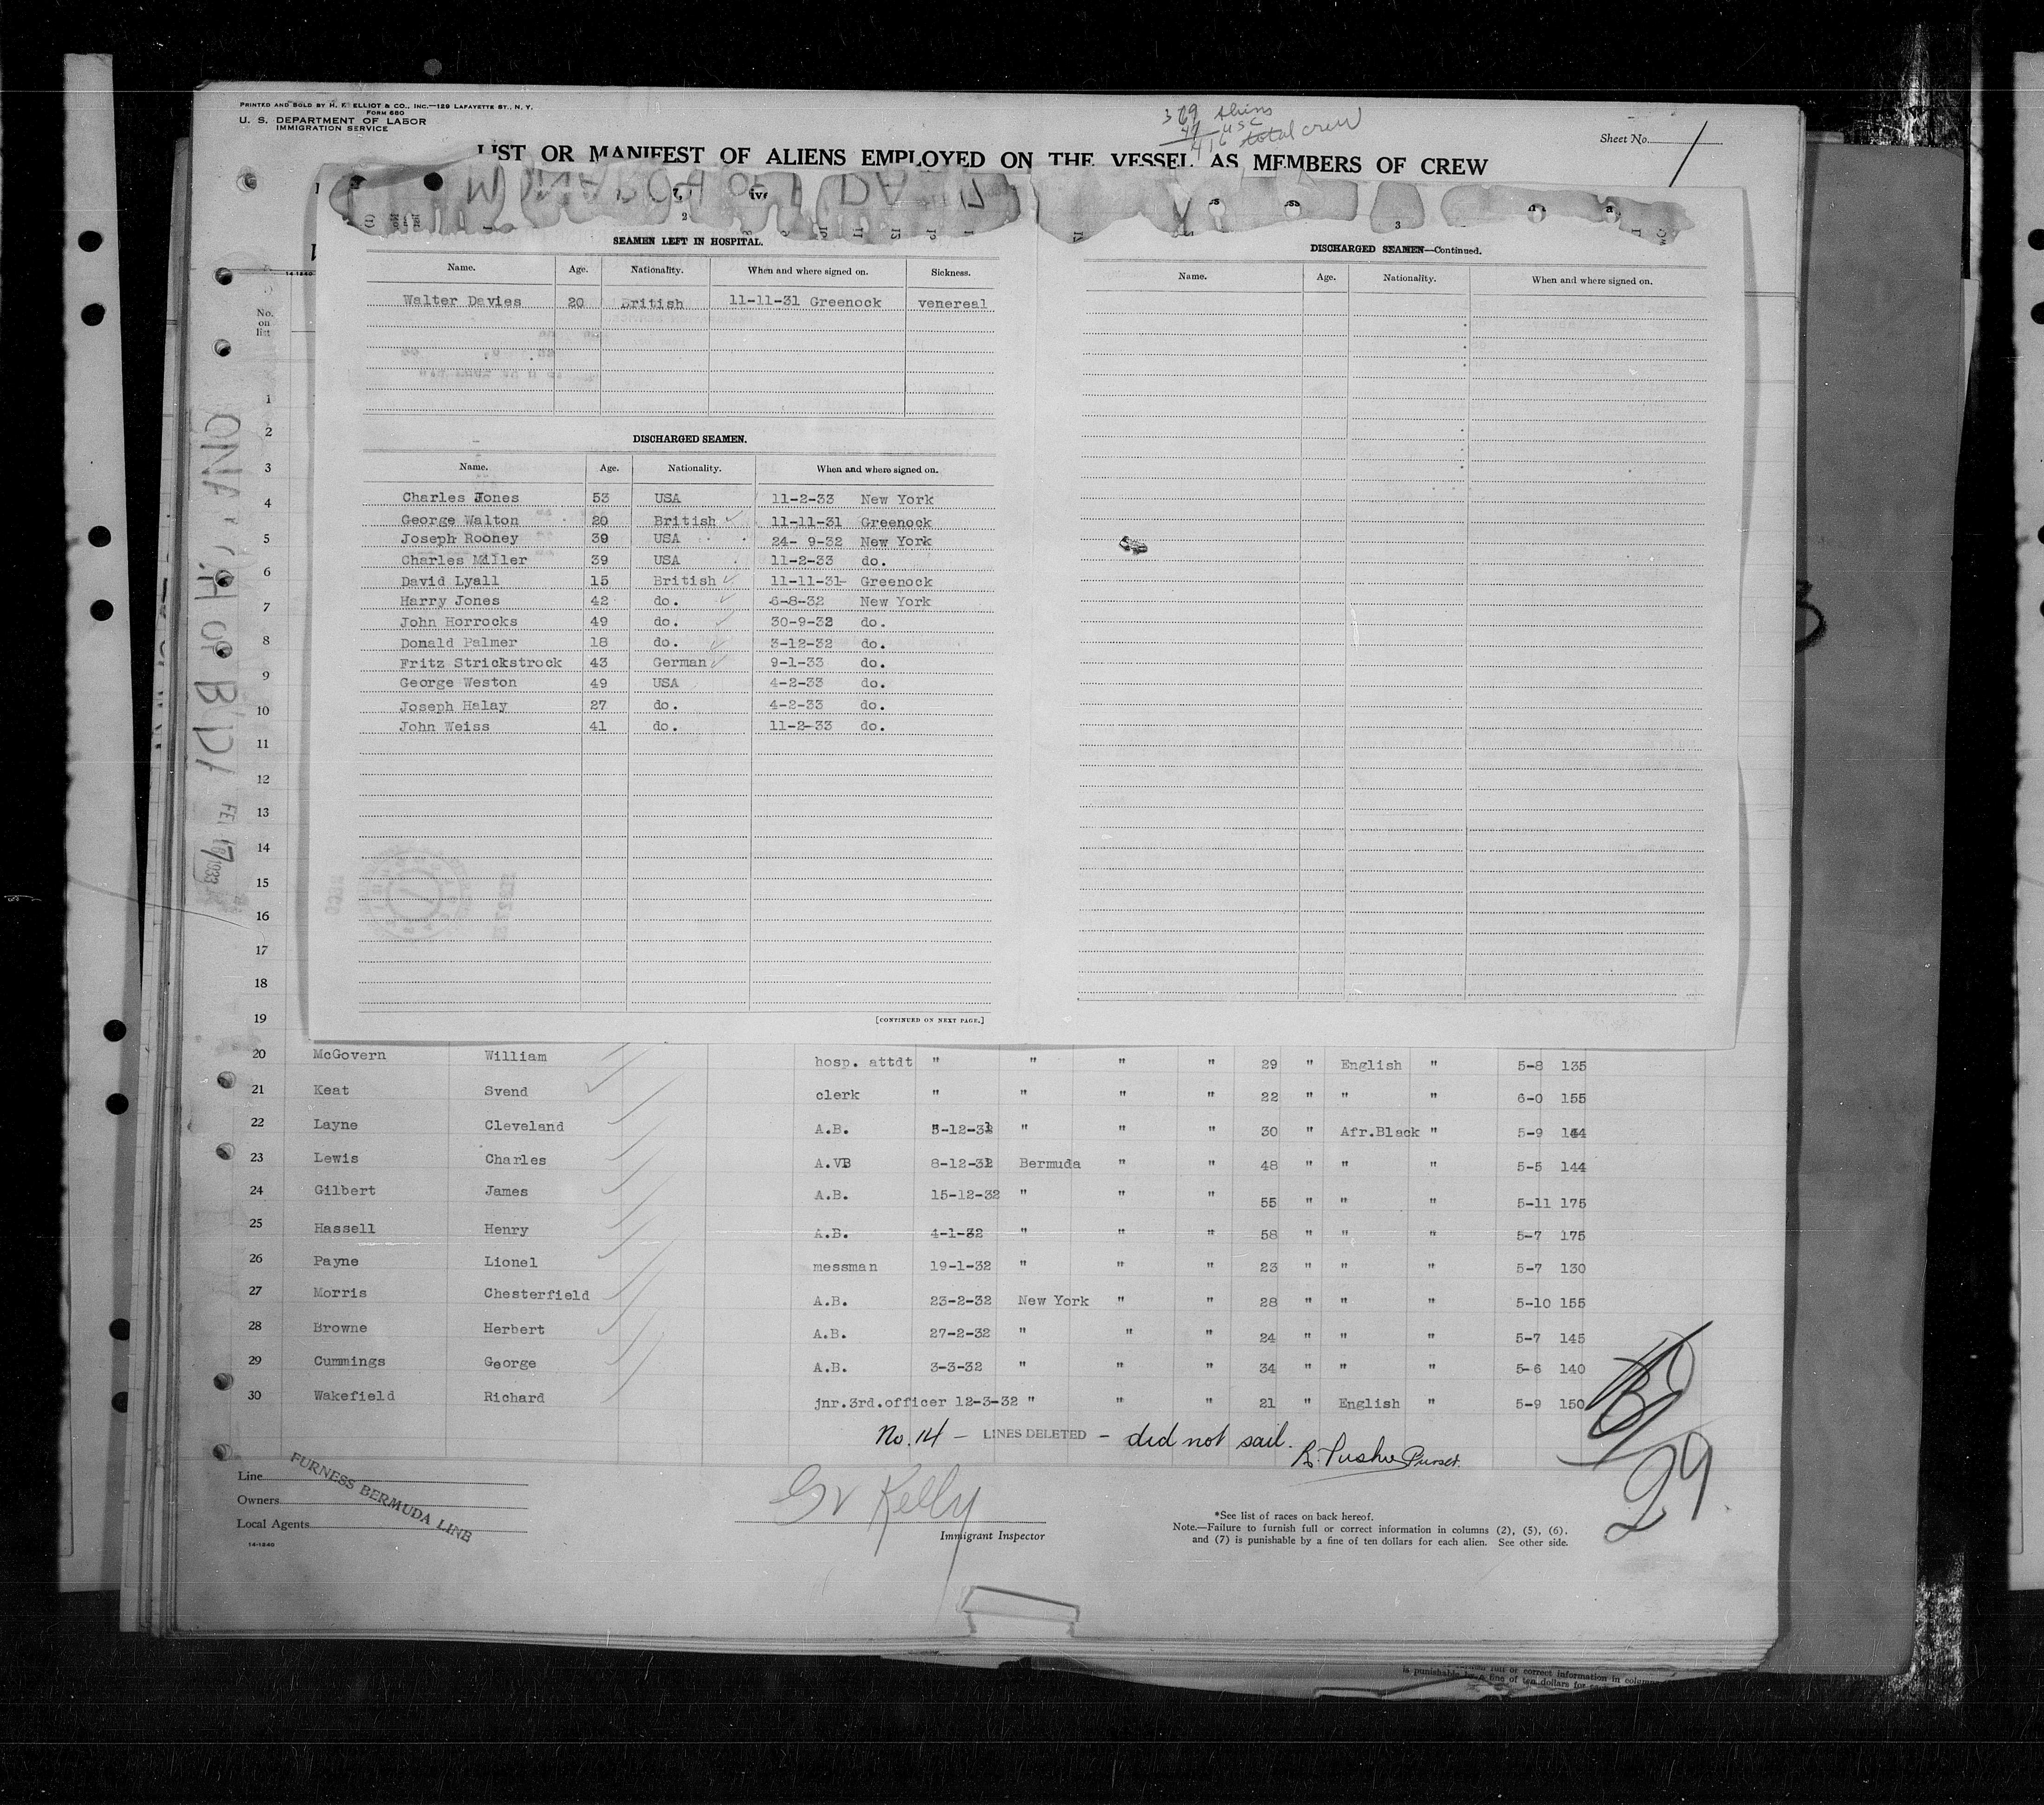 PRINTED AND SOLD BY H. F. ELLIOT & CO., INC.—129 LAFAYETTE ST., N. Y.
FORM 680
U. S. DEPARTMENT OF LABOR
IMMIGRATION SERVICE
369 Aliens
47 USC
416 total crew
Sheet No. 1
LIST OR MANIFEST OF ALIENS EMPLOYED ON THE VESSEL AS MEMBERS OF CREW
SEAMEN LEFT IN HOSPITAL.
Name. Age. Nationality. When and where signed on. Sickness.
Walter Davies 20 British 11-11-31 Greenock venereal
DISCHARGED SEAMEN.
Name. Age. Nationality. When and where signed on.
Charles Jones 53 USA 11-2-33 New York
George Walton 20 British 11-11-31 Greenock
Joseph Rooney 39 USA 24- 9-32 New York
Charles Miller 39 USA 11-2-33 do.
David Lyall 15 British 11-11-31 Greenock
Harry Jones 42 do. 6-8-32 New York
John Horrocks 49 do. 30-9-32 do.
Donald Palmer 18 do. 3-12-32 do.
Fritz Strickstrock 43 German 9-1-33 do.
George Weston 49 USA 4-2-33 do.
Joseph Halay 27 do. 4-2-33 do.
John Weiss 41 do. 11-2-33 do.
[CONTINUED ON NEXT PAGE.]
DISCHARGED SEAMEN—Continued.
Name. Age. Nationality. When and where signed on.
No. on list
1
2
3
4
5
6
7
8
9
10
11
12
13
14
15
16
17
18
19
20 McGovern William hosp. attdt " " " " 29 " English " 5-8 135
21 Keat Svend clerk " " " " 22 " " " 6-0 155
22 Layne Cleveland A.B. 5-12-31 " " " 30 " Afr.Black " 5-9 144
23 Lewis Charles A.B 8-12-31 Bermuda " " 48 " " " 5-5 144
24 Gilbert James A.B. 15-12-32 " " " 55 " " " 5-11 175
25 Hassell Henry A.B. 4-1-32 " " " 58 " " " 5-7 175
26 Payne Lionel messman 19-1-32 " " " 23 " " " 5-7 130
27 Morris Chesterfield A.B. 23-2-32 New York " " 28 " " " 5-10 155
28 Browne Herbert A.B. 27-2-32 " " " 24 " " " 5-7 145
29 Cummings George A.B. 3-3-32 " " " 34 " " " 5-6 140
30 Wakefield Richard jnr.3rd.officer 12-3-32 " " " 21 " English " 5-9 150
No. 14 — LINES DELETED — did not sail.
Purser.
29
Line
Owners
Local Agents
FURNESS BERMUDA LINE
14-1240
Kelly
Immigrant Inspector
*See list of races on back hereof.
Note.—Failure to furnish full or correct information in columns (2), (5), (6),
and (7) is punishable by a fine of ten dollars for each alien. See other side.